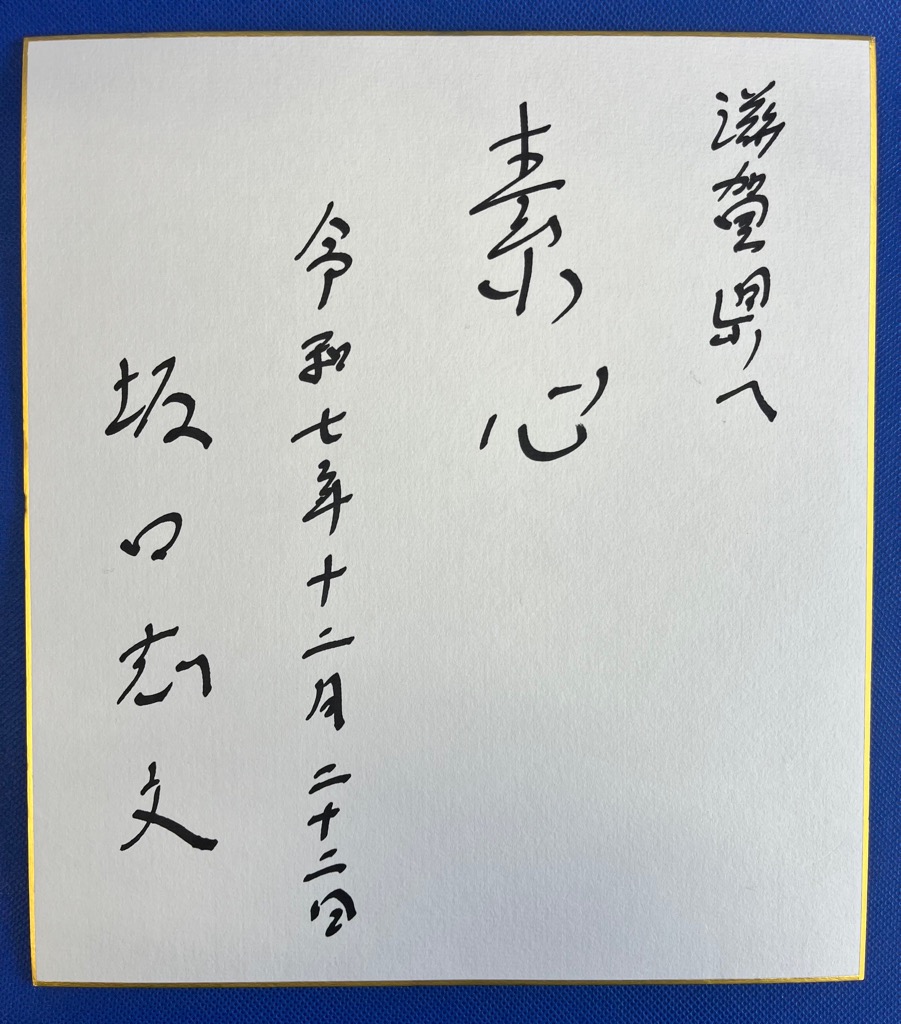 滋賀県へ
素心
令和七年十二月二十二日
坂口志文